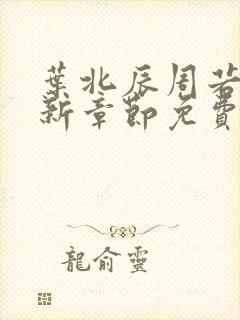 葉北辰周若
新章節免費
龍俞靈